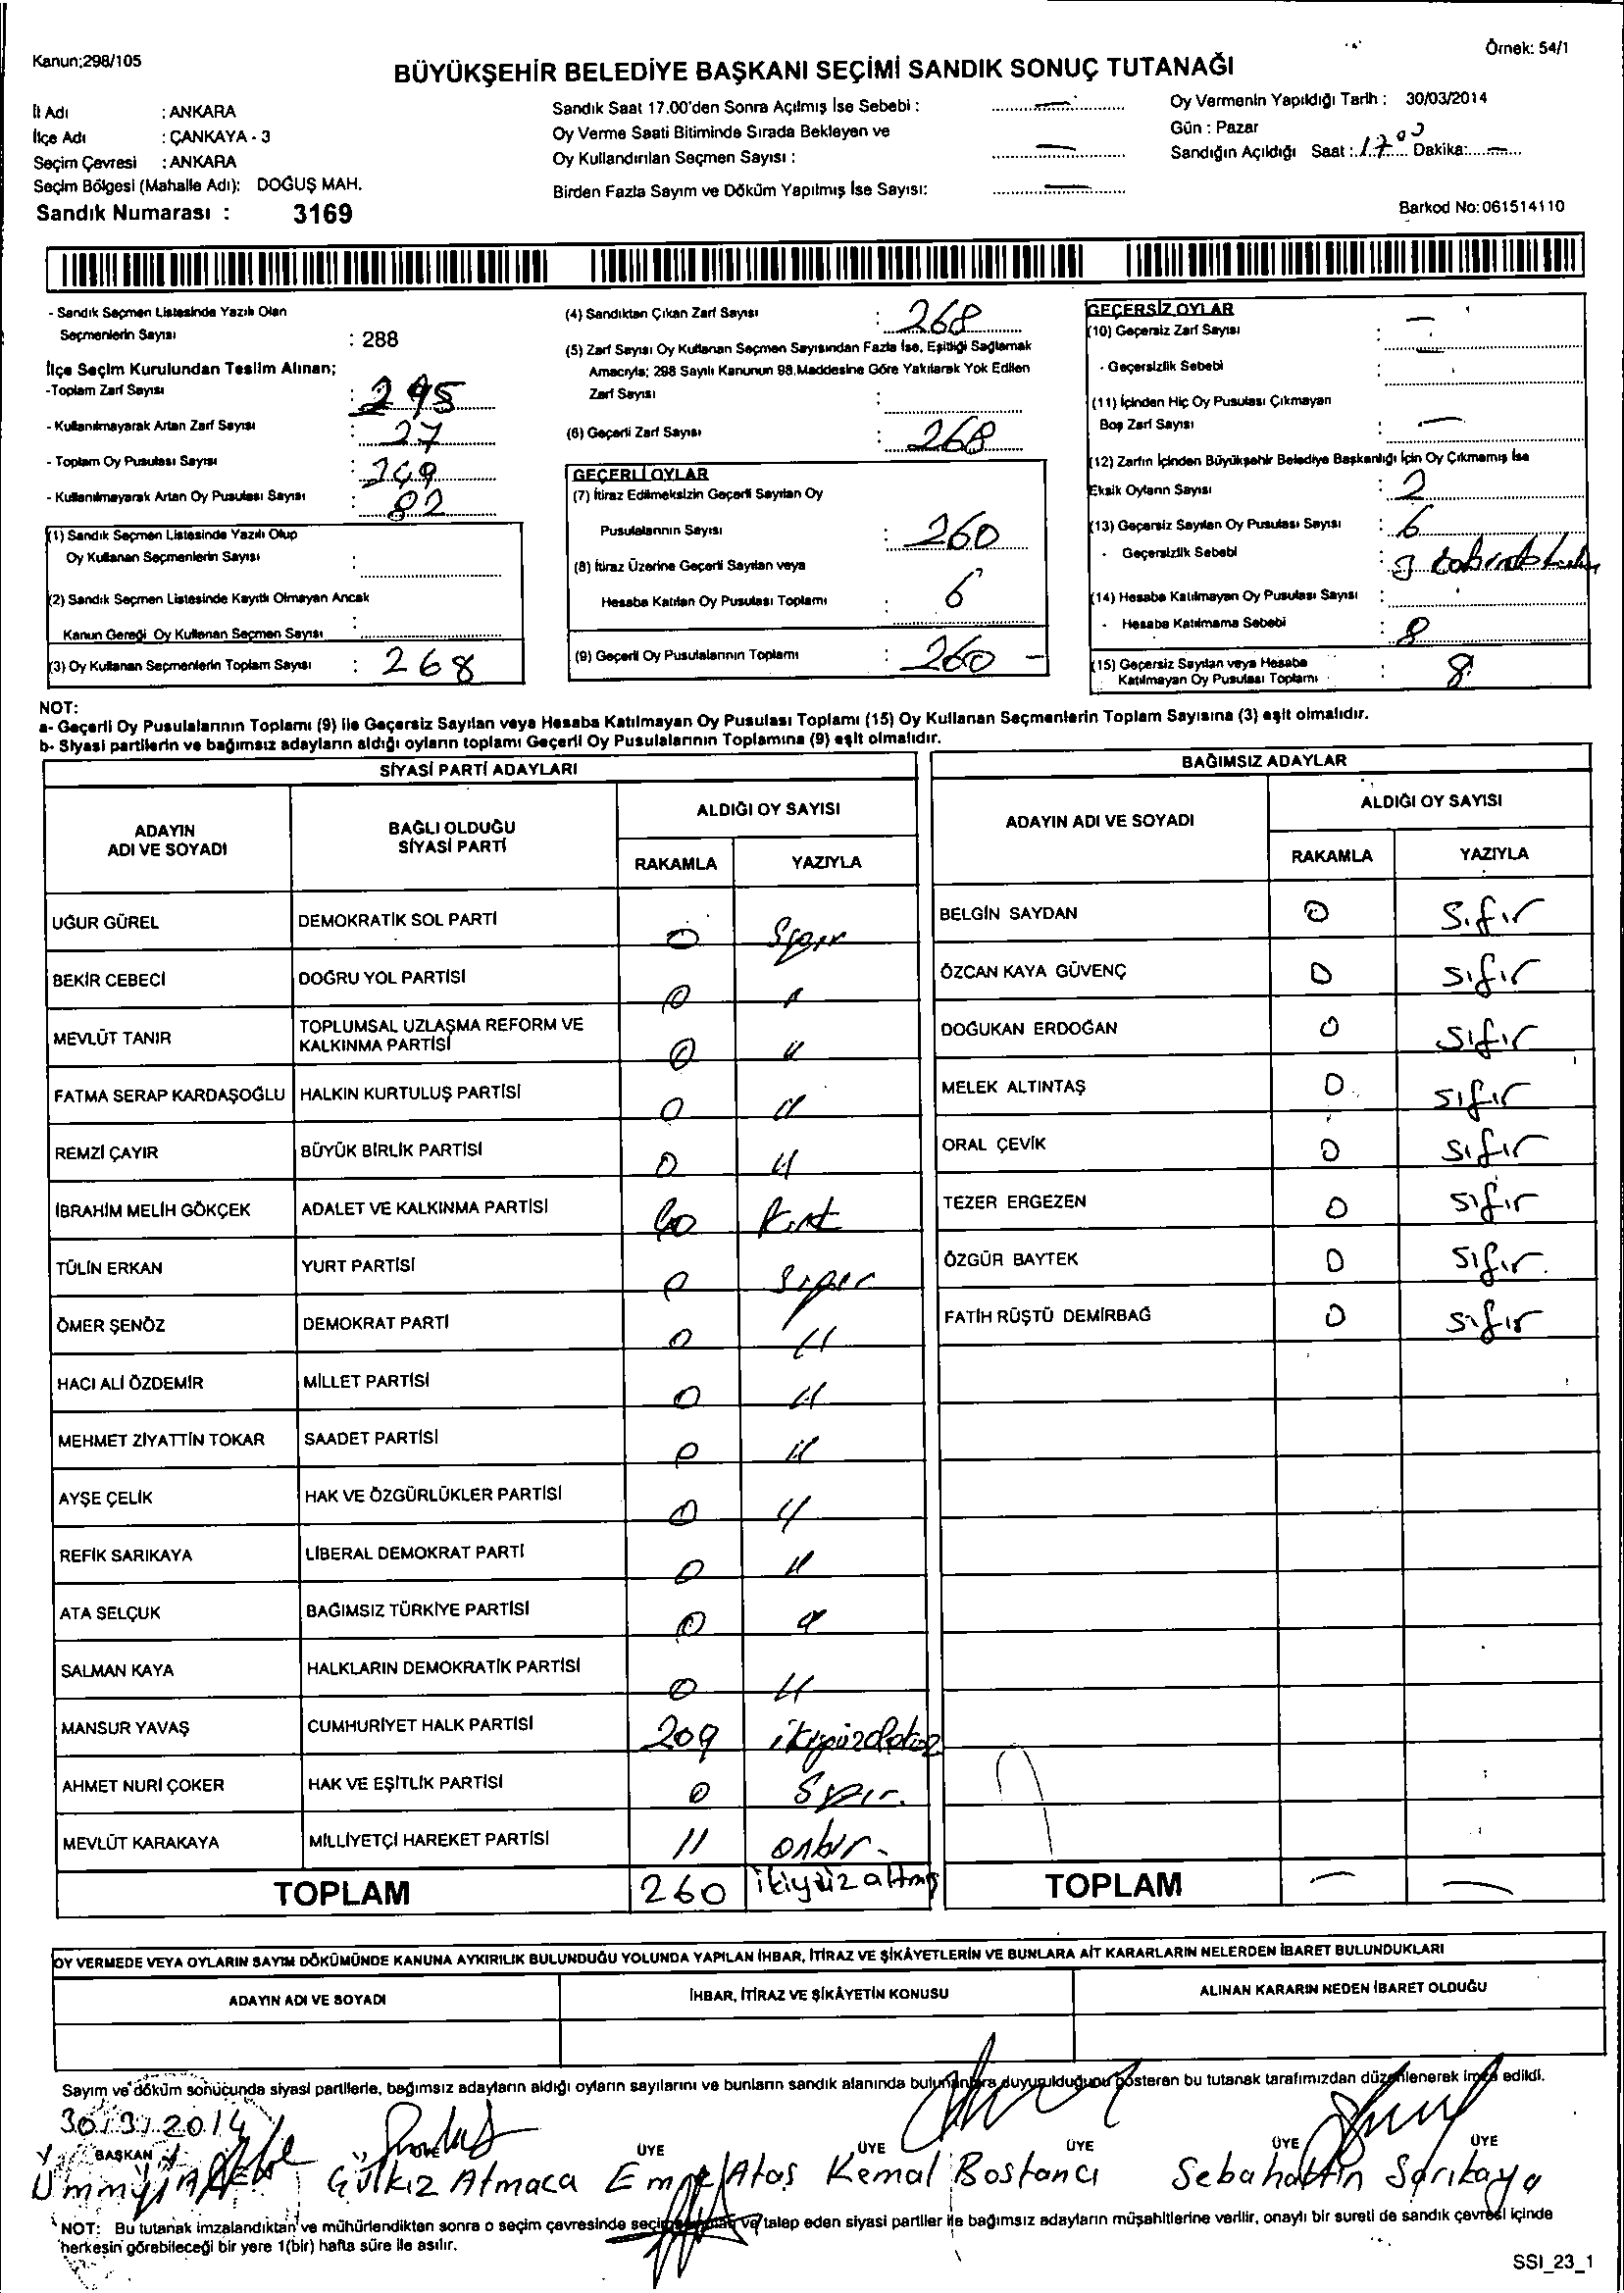 Kanun;298/105
Örnek: 54/1
BÜYÜKŞEHİR BELEDİYE BAŞKANI SEÇİMİ SANDIK SONUÇ TUTANAĞI
İl Adı : ANKARA
İlçe Adı : ÇANKAYA - 3
Seçim Çevresi : ANKARA
Seçim Bölgesi (Mahalle Adı): DOĞUŞ MAH.
Sandık Numarası : 3169
Sandık Saat 17.00'den Sonra Açılmış İse Sebebi : —
Oy Verme Saati Bitiminde Sırada Bekleyen ve
Oy Kullandırılan Seçmen Sayısı : —
Birden Fazla Sayım ve Döküm Yapılmış İse Sayısı: —
Oy Vermenin Yapıldığı Tarih : 30/03/2014
Gün : Pazar
Sandığın Açıldığı Saat : 17 00 Dakika: —
Barkod No:061514110
- Sandık Seçmen Listesinde Yazılı Olan
Seçmenlerin Sayısı : 288
İlçe Seçim Kurulundan Teslim Alınan;
-Toplam Zarf Sayısı : 295
- Kullanılmayarak Artan Zarf Sayısı : 27
- Toplam Oy Pusulası Sayısı :
- Kullanılmayarak Artan Oy Pusulası Sayısı : 82
(1) Sandık Seçmen Listesinde Yazılı Olup
Oy Kullanan Seçmenlerin Sayısı :
(2) Sandık Seçmen Listesinde Kayıtlı Olmayan Ancak
Kanun Gereği Oy Kullanan Seçmen Sayısı :
(3) Oy Kullanan Seçmenlerin Toplam Sayısı : 268
(4) Sandıktan Çıkan Zarf Sayısı : 268
(5) Zarf Sayısı Oy Kullanan Seçmen Sayısından Fazla İse, Eşitliği Sağlamak
Amacıyla; 298 Sayılı Kanunun 98.Maddesine Göre Yakılarak Yok Edilen
Zarf Sayısı :
(6) Geçerli Zarf Sayısı : 268
GEÇERLİ OYLAR
(7) İtiraz Edilmeksizin Geçerli Sayılan Oy
Pusulalarının Sayısı : 260
(8) İtiraz Üzerine Geçerli Sayılan veya
Hesaba Katılan Oy Pusulası Toplamı : 6
(9) Geçerli Oy Pusulalarının Toplamı : 260 -
GEÇERSİZ OYLAR
(10) Geçersiz Zarf Sayısı : —
- Geçersizlik Sebebi : —
(11) İçinden Hiç Oy Pusulası Çıkmayan
Boş Zarf Sayısı : —
(12) Zarfın İçinden Büyükşehir Belediye Başkanlığı İçin Oy Çıkmamış İse
Eksik Oyların Sayısı : 2
(13) Geçersiz Sayılan Oy Pusulası Sayısı : 6
- Geçersizlik Sebebi :
(14) Hesaba Katılmayan Oy Pusulası Sayısı :
- Hesaba Katılmama Sebebi : 8
(15) Geçersiz Sayılan veya Hesaba
Katılmayan Oy Pusulası Toplamı : 8
NOT:
a- Geçerli Oy Pusulalarının Toplamı (9) ile Geçersiz Sayılan veya Hesaba Katılmayan Oy Pusulası Toplamı (15) Oy Kullanan Seçmenlerin Toplam Sayısına (3) eşit olmalıdır.
b- Siyasi partilerin ve bağımsız adayların aldığı oyların toplamı Geçerli Oy Pusulalarının Toplamına (9) eşit olmalıdır.
SİYASİ PARTİ ADAYLARI
ADAYIN ADI VE SOYADI
BAĞLI OLDUĞU SİYASİ PARTİ
ALDIĞI OY SAYISI
RAKAMLA YAZIYLA
UĞUR GÜREL DEMOKRATİK SOL PARTİ 0 Sıfır
BEKİR CEBECİ DOĞRU YOL PARTİSİ 0 "
MEVLÜT TANIR TOPLUMSAL UZLAŞMA REFORM VE KALKINMA PARTİSİ 0 "
FATMA SERAP KARDAŞOĞLU HALKIN KURTULUŞ PARTİSİ 0 "
REMZİ ÇAYIR BÜYÜK BİRLİK PARTİSİ 0 "
İBRAHİM MELİH GÖKÇEK ADALET VE KALKINMA PARTİSİ 40 Kırk
TÜLİN ERKAN YURT PARTİSİ 0 Sıfır
ÖMER ŞENÖZ DEMOKRAT PARTİ 0 "
HACI ALİ ÖZDEMİR MİLLET PARTİSİ 0 "
MEHMET ZİYATTİN TOKAR SAADET PARTİSİ 0 "
AYŞE ÇELİK HAK VE ÖZGÜRLÜKLER PARTİSİ 0 "
REFİK SARIKAYA LİBERAL DEMOKRAT PARTİ 0 "
ATA SELÇUK BAĞIMSIZ TÜRKİYE PARTİSİ 0 "
SALMAN KAYA HALKLARIN DEMOKRATİK PARTİSİ 0 "
MANSUR YAVAŞ CUMHURİYET HALK PARTİSİ 209 ikiyüzdokuz
AHMET NURİ ÇOKER HAK VE EŞİTLİK PARTİSİ 0 Sıfır.
MEVLÜT KARAKAYA MİLLİYETÇİ HAREKET PARTİSİ 11 onbir -
TOPLAM 260 ikiyüz altmış
BAĞIMSIZ ADAYLAR
ADAYIN ADI VE SOYADI
ALDIĞI OY SAYISI
RAKAMLA YAZIYLA
BELGİN SAYDAN 0 Sıfır
ÖZCAN KAYA GÜVENÇ 0 sıfır
DOĞUKAN ERDOĞAN 0 Sıfır
MELEK ALTINTAŞ 0 sıfır
ORAL ÇEVİK 0 sıfır
TEZER ERGEZEN 0 sıfır
ÖZGÜR BAYTEK 0 sıfır
FATİH RÜŞTÜ DEMİRBAĞ 0 sıfır
TOPLAM — —
OY VERMEDE VEYA OYLARIN SAYIM DÖKÜMÜNDE KANUNA AYKIRILIK BULUNDUĞU YOLUNDA YAPILAN İHBAR, İTİRAZ VE ŞİKÂYETLERİN VE BUNLARA AİT KARARLARIN NELERDEN İBARET BULUNDUKLARI
ADAYIN ADI VE SOYADI İHBAR, İTİRAZ VE ŞİKÂYETİN KONUSU ALINAN KARARIN NEDEN İBARET OLDUĞU
Sayım ve döküm sonucunda siyasi partilerle, bağımsız adayların aldığı oyların sayılarını ve bunların sandık alanında bulunanlara duyurulduğunu gösteren bu tutanak tarafımızdan düzenlenerek imza edildi.
30/3/2014
BAŞKAN ÜYE ÜYE ÜYE ÜYE ÜYE
Gülkız Atmaca Emre Ataş Kemal Bostancı Sebahattin Sarıkaya
NOT: Bu tutanak imzalandıktan ve mühürlendikten sonra o seçim çevresinde ve talep eden siyasi partiler ile bağımsız adayların müşahitlerine verilir, onaylı bir sureti de sandık çevresi içinde
herkesin görebileceği bir yere 1(bir) hafta süre ile asılır.
SSI_23_1